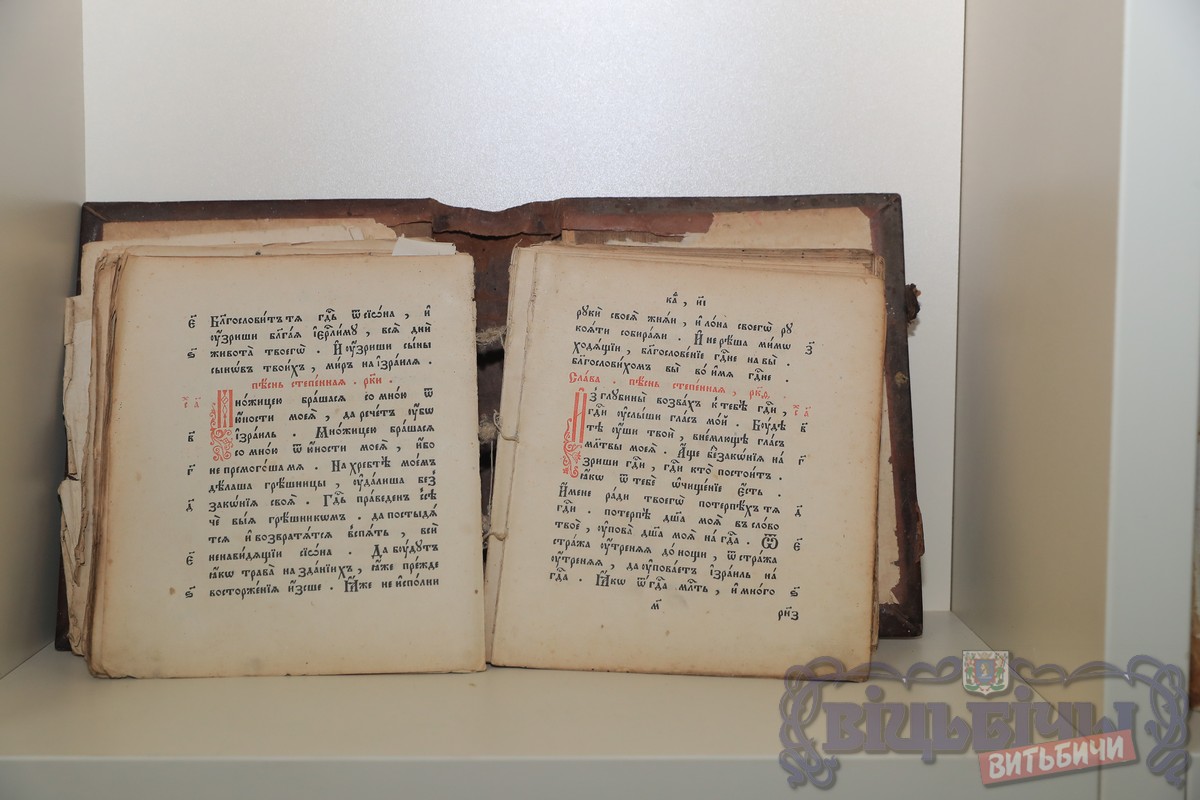 є҃ Блгⷭ҇ловитъ тѧ гдⷭ҇ь ѿ сїѡ́на , и҆
ᲂу҆́зриши блгⷢ҇аѧ і҆ерⷭ҇ли́мꙋ , всѧ̀ дни̑
ѕ҃ живота̀ твоегѡ̀ . И҆ ᲂу҆́зриши сы́ны
сынѡ́въ твои́хъ , ми́ръ на і҆зра́илѧ .
пѣ́снь степе́ннаѧ . рк҃и .
Мно́жицею браша́сѧ со мно́ю ѿ
ю҆́ности моеѧ̀ , да рече́тъ ᲂу҆́бѡ
в҃ і҆зра́иль . Мно́жицею браша́сѧ
со мно́ю ѿ ю҆́ности моеѧ̀ , и҆́бо
г҃ не премого́ша мѧ . На хребтѣ̀ мое́мъ
дѣ́лаша грѣ́шницы , ᲂу҆дали́ша без̾
д҃ зако́нїѧ своѧ̀ . Гдⷭ҇ь пра́веденъ ссѣ
чѐ вы́ѧ грѣ́шникомъ . да постыдѧ́
тсѧ и҆ возвратѧ́тсѧ вспѧ́ть , всѝ
є҃ ненави́дѧщїи сїѡ́на . Да бꙋ́дꙋтъ
ꙗ҆́кѡ трава̀ на зда́нїихъ , ꙗ҆́же пре́жде
ѕ҃ восторже́нїѧ и҆́зсше . І҆́мже не и҆спо́лни
ка̑ѳ , и҃і
рꙋкѝ своеѧ̀ жнѧ́и , и҆ ло́на своегѡ̀ рꙋ
коѧ́ти собира́ѧи . И҆ не рѣ́ша ми́мѡ з҃
ходѧ́щїи , блгⷭ҇лове́нїе гдⷭ҇не на вы̀ .
блгⷭ҇лови́хомъ вы̀ во и҆́мѧ гдⷭ҇не .
Сла́ва . пѣ́снь степе́ннаѧ , рк҃ѳ .
И҆з̾ глꙋбины̀ воззва́хъ к тебѣ̀ гдⷭ҇и ,
гдⷭ҇и ᲂу҆слы́ши гла́съ мо́й . Бꙋ́дѣ в҃
тѣ ᲂу҆́ши твоѝ , вне́млющѣ гла́съ
мл҃твы моеѧ̀ . А҆́ще беззако́нїѧ на́ г҃
зриши гдⷭ҇и , гдⷭ҇и кто̀ постои́тъ .
ꙗ҆́кѡ ѿ тебѐ ѡ҆чище́нїе є҆́сть .
И҆́мене ра́ди твоегѡ̀ потерпѣ́хъ тѧ̀ д҃
гдⷭ҇и . потерпѣ̀ дш҃а̀ моѧ̀ въ сло́во
твоѐ , ᲂу҆пова̀ дш҃а̀ моѧ̀ на гдⷭ҇а . Ѿ є҃
стра́жа ᲂу҆́тренѧѧ до но́щи , ѿ стра́жа
ᲂу҆́тренѧѧ , да ᲂу҆пова́етъ і҆зра́иль на̀
гдⷭ҇а . Ꙗ҆́кѡ ѿ гдⷭ҇а млⷭ҇ть , и҆ мно́го ѕ҃
м҃ рн҃з
Віцьбічы
ВИТЬБИЧИ